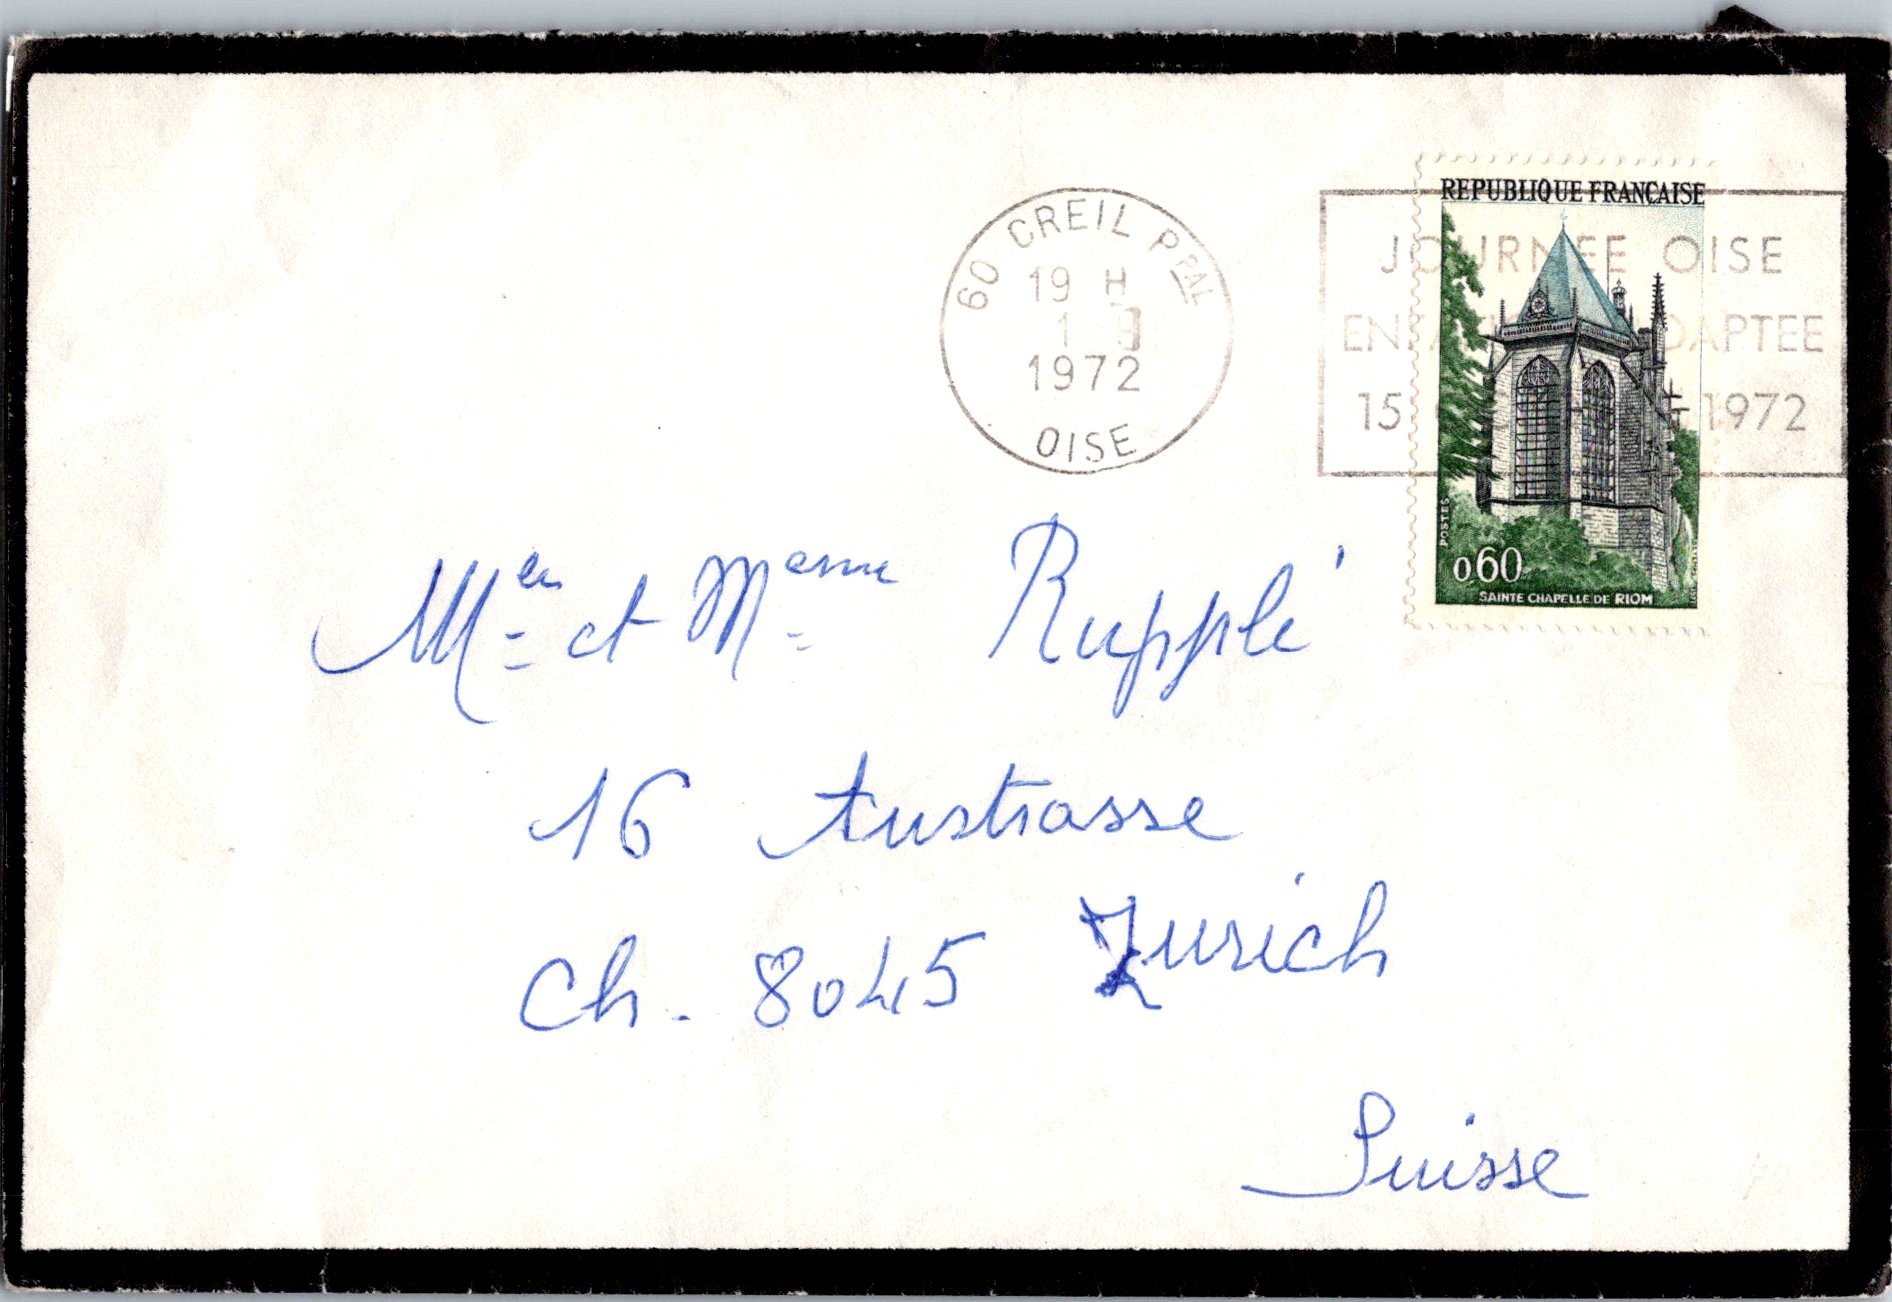 60 CREIL PPAL
19 H
1
1972
OISE
JOURNEE OISE
DAPTEE
15 1972
REPUBLIQUE FRANÇAISE
POSTES
0,60
SAINTE CHAPELLE DE RIOM
Mer et Meme Rupplé
16 Austrasse
Ch. 8045 Zurich
Suisse